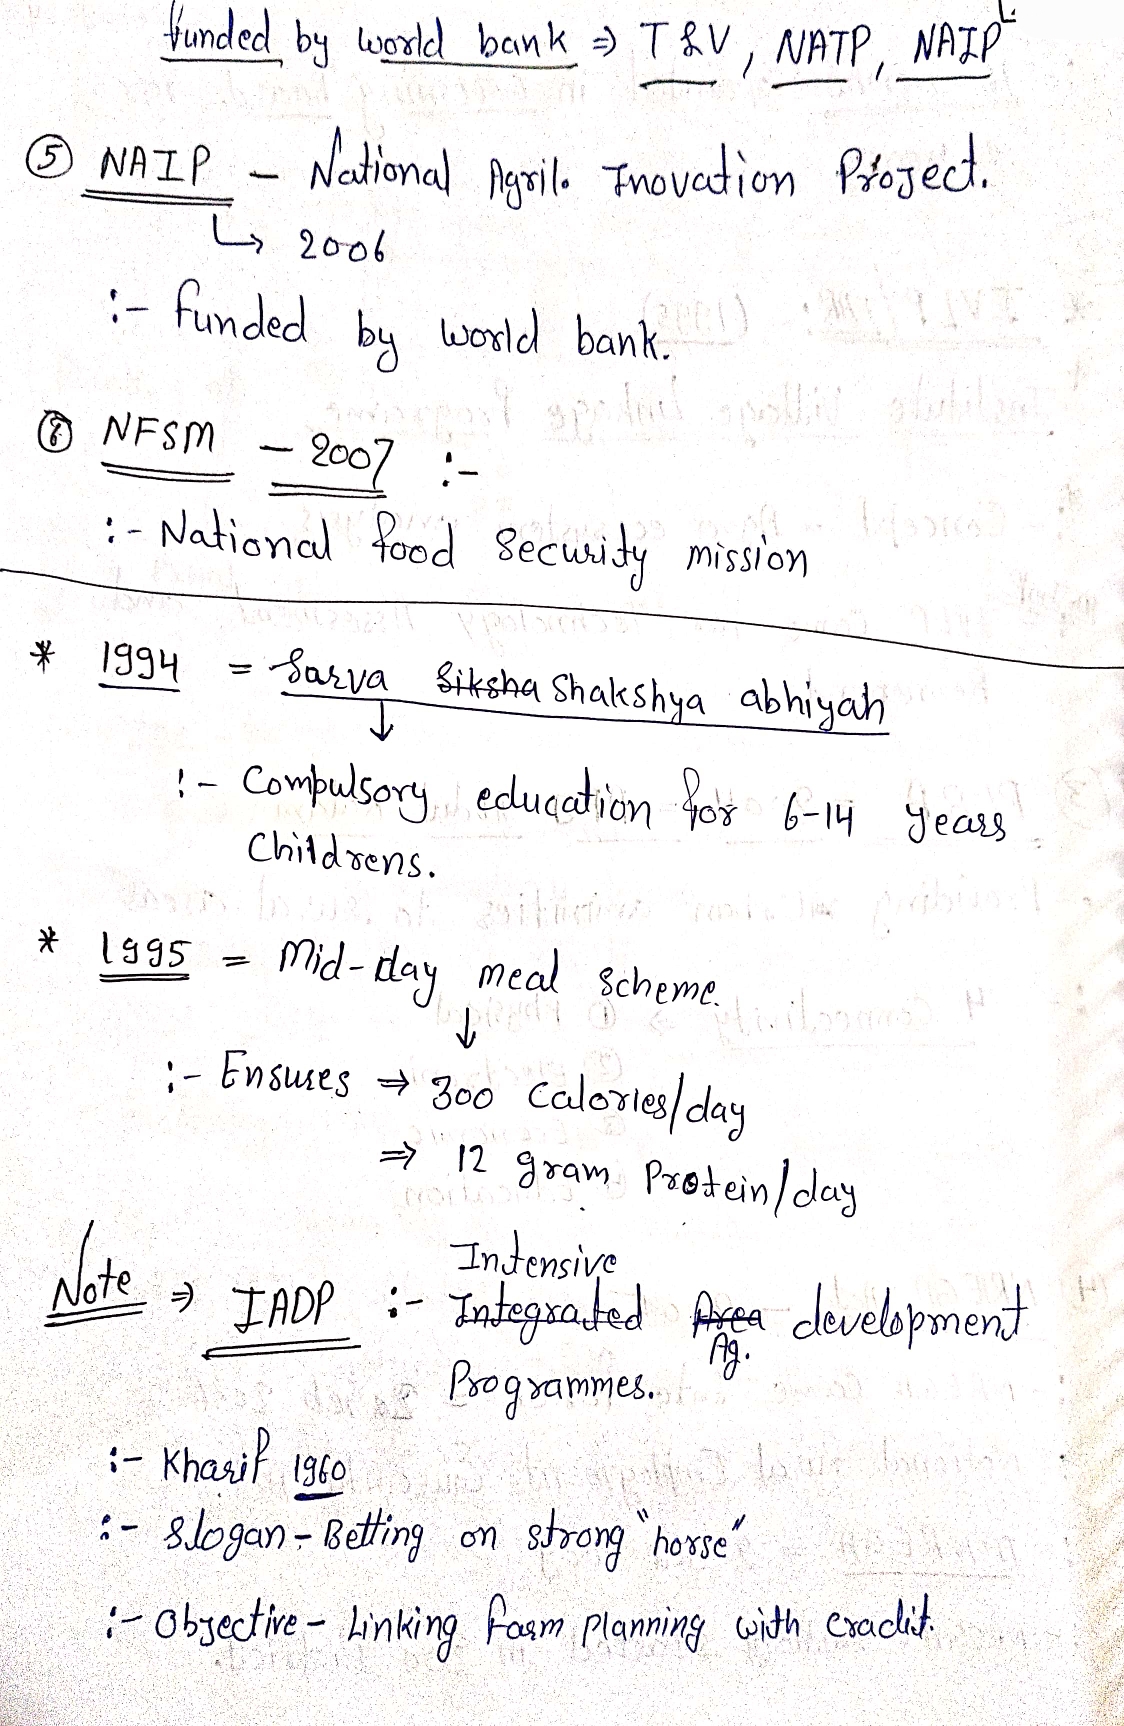 funded by world bank ⇒ T &V, NATP, NAIP
⑤ NAIP – National Agril. Inovation Project.
↳ 2006
:- funded by world bank.
⑧ NFSM – 2007 :-
:- National food security mission
* 1994 = Sarva Siksha Shakshya abhiyah
↓
:- Compulsory education for 6-14 years
Childrens.
* 1995 = Mid-day meal scheme.
↓
:- Ensures ⇒ 300 calories/day
⇒ 12 gram Protein/day
Intensive
Note ⇒ IADP :- Integrated Area development
Ag.
Programmes.
:- Kharif 1960
:- Slogan - Betting on strong "horse"
:- Objective - Linking farm planning with cradit.